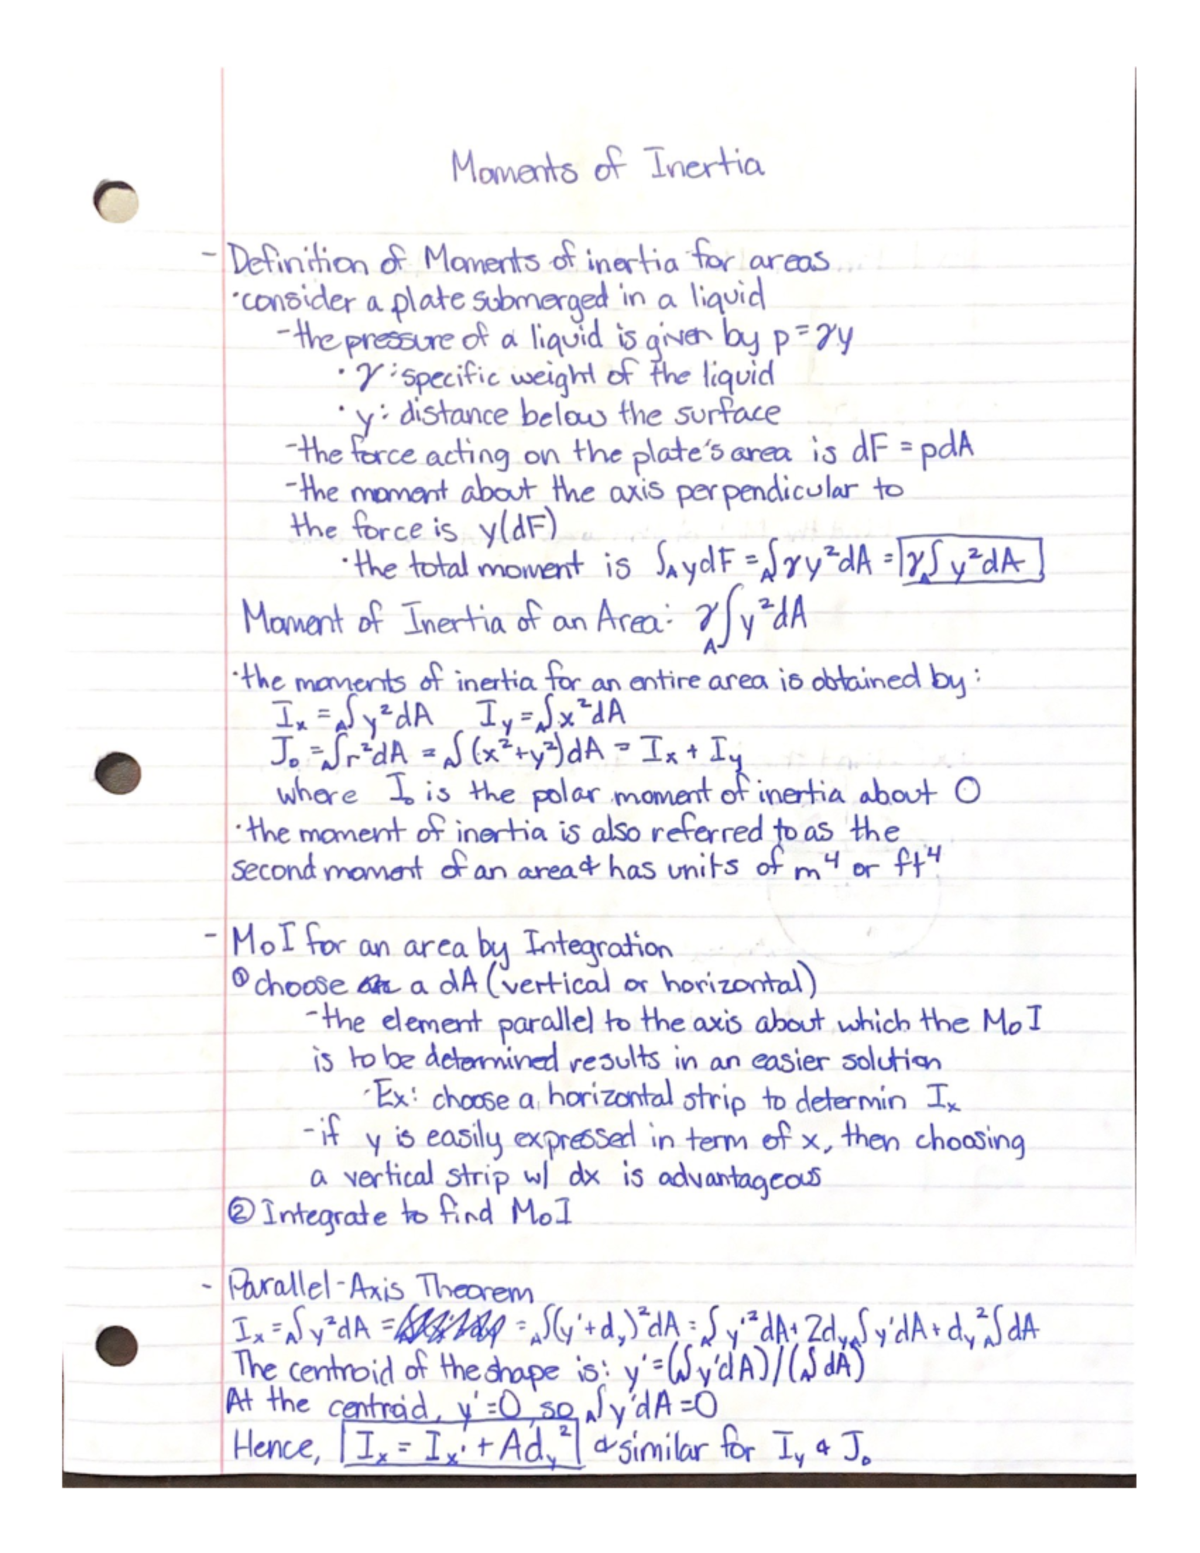 Moments of Inertia
- Definition of Moments of inertia for areas
·consider a plate submerged in a liquid
-the pressure of a liquid is given by p=γy
·γ: specific weight of the liquid
·y: distance below the surface
-the force acting on the plate's area is dF = pdA
-the moment about the axis perpendicular to
the force is y(dF)
·the total moment is ∫_A ydF = _A∫γy²dA = γ_A∫y²dA
Moment of Inertia of an Area: γ_A∫y²dA
·the moments of inertia for an entire area is obtained by:
I_x = _A∫y²dA I_y = _A∫x²dA
J_o = _A∫r²dA = _A∫(x²+y²)dA = I_x + I_y
where J_o is the polar moment of inertia about O
·the moment of inertia is also referred to as the
second moment of an area & has units of m⁴ or ft⁴
- MoI for an area by Integration
① choose a dA (vertical or horizontal)
-the element parallel to the axis about which the MoI
is to be determined results in an easier solution
·Ex: choose a horizontal strip to determin I_x
-if y is easily expressed in term of x, then choosing
a vertical strip w/ dx is advantageous
② Integrate to find MoI
- Parallel-Axis Theorem
I_x = _A∫y²dA = = _A∫(y'+d_y)²dA = ∫y'²dA + 2d_y _A∫y'dA + d_y² _A∫dA
The centroid of the shape is: y' = (_A∫y'dA)/(_A∫dA)
At the centroid, y'=0, so _A∫y'dA=0
Hence, I_x = I_x' + Ad_y² & similar for I_y & J_o